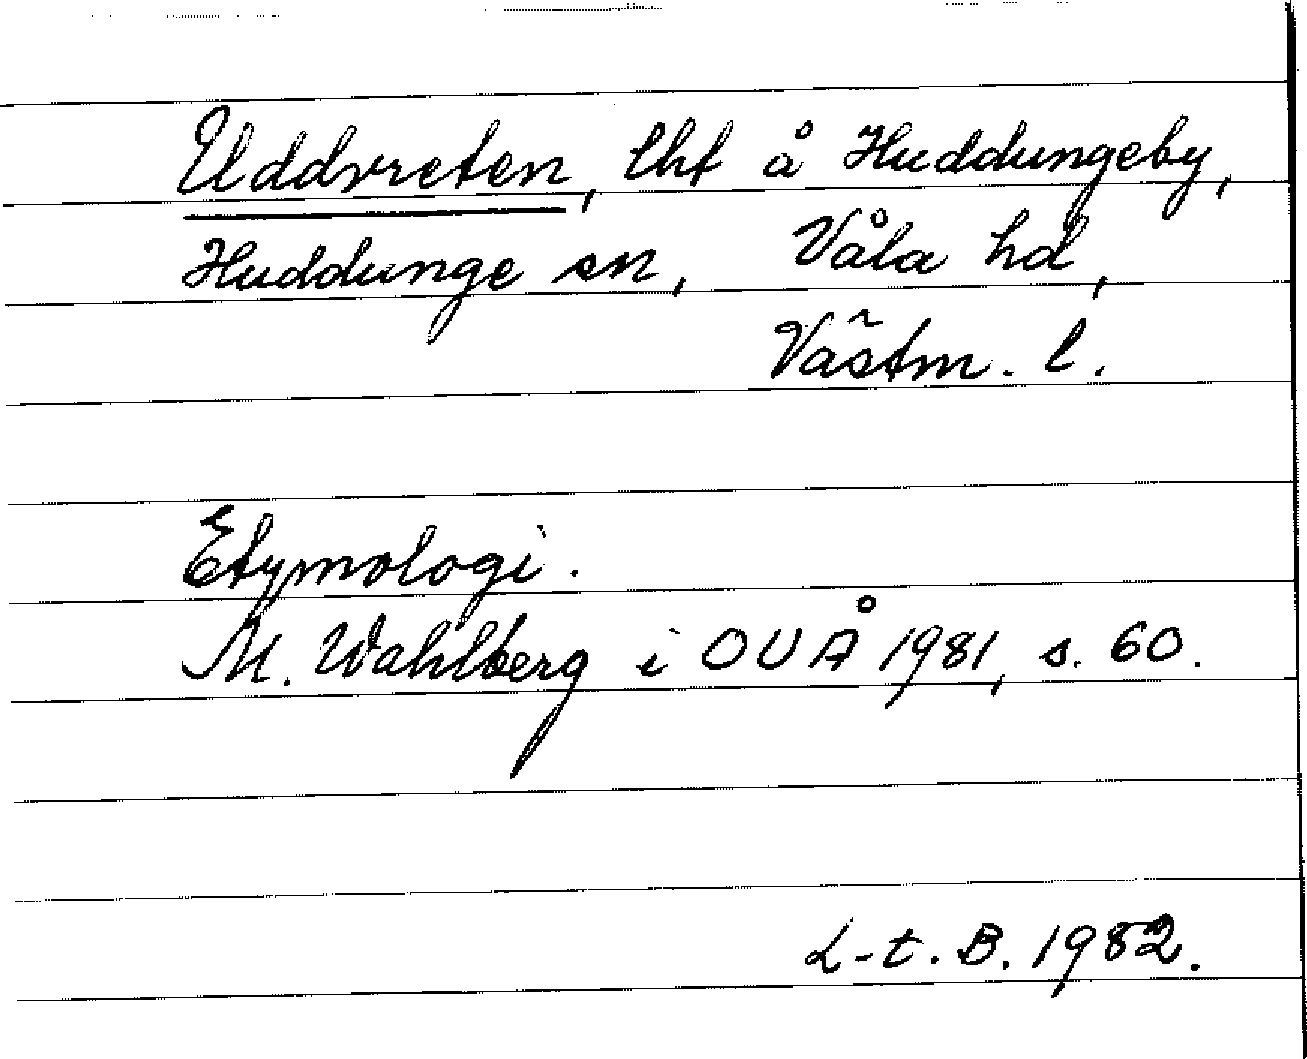 Uddvreten, lht å Huddungeby,
Huddunge sn, Våla hd,
Västm. l.
Etymologi.
M. Wahlberg i OUÅ 1981, s. 60.
L-t. B. 1982.